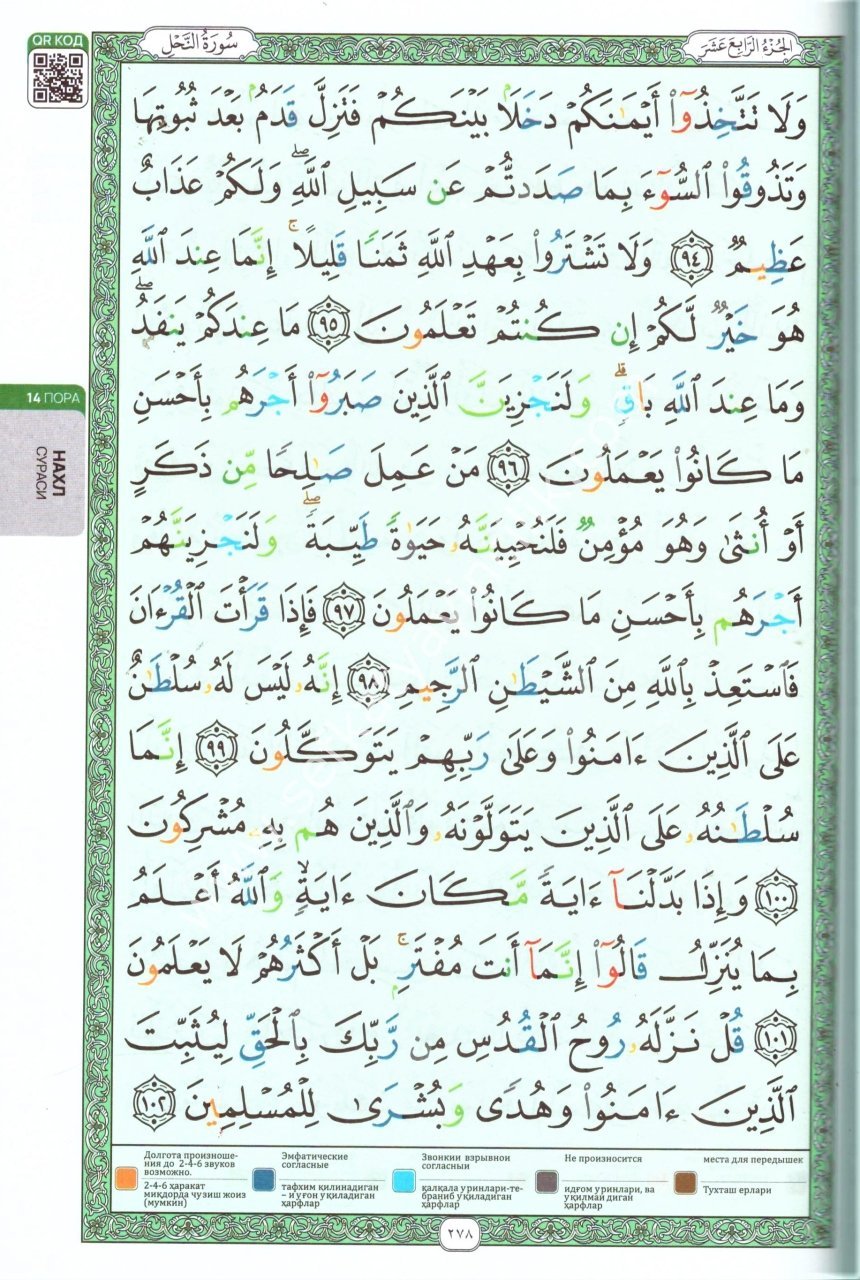 QR КОД
سُورَةُ النَّحْلِ
الجُزْءُ الرَّابِعَ عَشَرَ
وَلَا تَتَّخِذُوٓا۟ أَيْمَـٰنَكُمْ دَخَلًۢا بَيْنَكُمْ فَتَزِلَّ قَدَمٌۢ بَعْدَ ثُبُوتِهَا
وَتَذُوقُوا۟ ٱلسُّوٓءَ بِمَا صَدَدتُّمْ عَن سَبِيلِ ٱللَّهِ ۖ وَلَكُمْ عَذَابٌ
عَظِيمٌ ٩٤ وَلَا تَشْتَرُوا۟ بِعَهْدِ ٱللَّهِ ثَمَنًا قَلِيلًا ۚ إِنَّمَا عِندَ ٱللَّهِ
هُوَ خَيْرٌ لَّكُمْ إِن كُنتُمْ تَعْلَمُونَ ٩٥ مَا عِندَكُمْ يَنفَدُ ۖ
وَمَا عِندَ ٱللَّهِ بَاقٍ ۗ وَلَنَجْزِيَنَّ ٱلَّذِينَ صَبَرُوٓا۟ أَجْرَهُم بِأَحْسَنِ
مَا كَانُوا۟ يَعْمَلُونَ ٩٦ مَنْ عَمِلَ صَـٰلِحًا مِّن ذَكَرٍ
أَوْ أُنثَىٰ وَهُوَ مُؤْمِنٌ فَلَنُحْيِيَنَّهُۥ حَيَوٰةً طَيِّبَةً ۖ وَلَنَجْزِيَنَّهُمْ
أَجْرَهُم بِأَحْسَنِ مَا كَانُوا۟ يَعْمَلُونَ ٩٧ فَإِذَا قَرَأْتَ ٱلْقُرْءَانَ
فَٱسْتَعِذْ بِٱللَّهِ مِنَ ٱلشَّيْطَـٰنِ ٱلرَّجِيمِ ٩٨ إِنَّهُۥ لَيْسَ لَهُۥ سُلْطَـٰنٌ
عَلَى ٱلَّذِينَ ءَامَنُوا۟ وَعَلَىٰ رَبِّهِمْ يَتَوَكَّلُونَ ٩٩ إِنَّمَا
سُلْطَـٰنُهُۥ عَلَى ٱلَّذِينَ يَتَوَلَّوْنَهُۥ وَٱلَّذِينَ هُم بِهِۦ مُشْرِكُونَ
١٠٠ وَإِذَا بَدَّلْنَآ ءَايَةً مَّكَانَ ءَايَةٍ ۙ وَٱللَّهُ أَعْلَمُ
بِمَا يُنَزِّلُ قَالُوٓا۟ إِنَّمَآ أَنتَ مُفْتَرٍۭ ۚ بَلْ أَكْثَرُهُمْ لَا يَعْلَمُونَ
١٠١ قُلْ نَزَّلَهُۥ رُوحُ ٱلْقُدُسِ مِن رَّبِّكَ بِٱلْحَقِّ لِيُثَبِّتَ
ٱلَّذِينَ ءَامَنُوا۟ وَهُدًى وَبُشْرَىٰ لِلْمُسْلِمِينَ ١٠٢
14 ПОРА
НАХЛ
СУРАСИ
Долгота произноше-
ния до 2-4-6 звуков
возможно.
2-4-6 ҳаракат
миқдорда чузиш жоиз
(мумкин)
Эмфатические
согласные
тафхим қилинадиган
– йуғон ўқиладиган
ҳарфлар
Звонкии взрывной
согласныи
қалқала уринлари-те-
браниб ўқиладиган
ҳарфлар
Не произносится
идғом уринлари, ва
уқилмай диган
ҳарфлар
места для передышек
Тухташ ерлари
٢٧٨